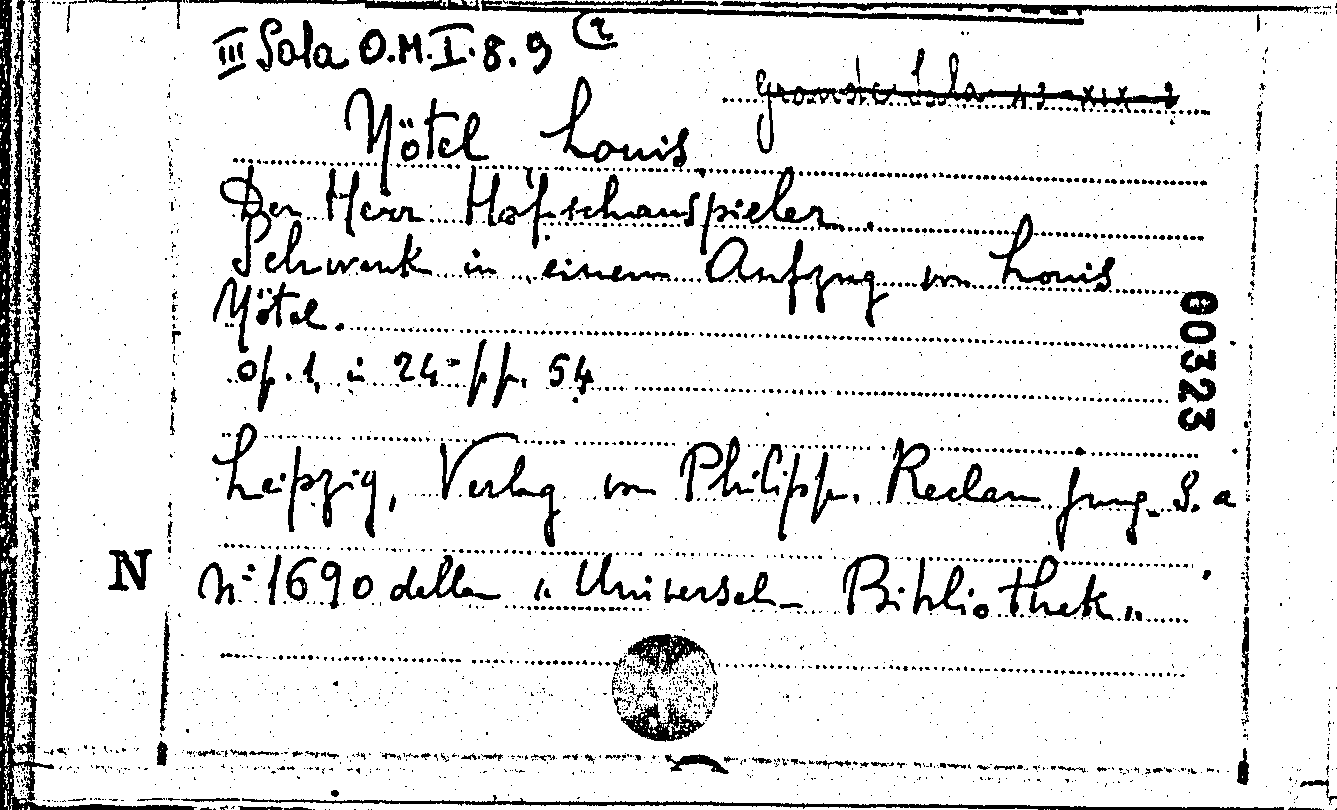 III Sala O.M.I.8.9 (2
Grande Sala 43-XIX-2
Nötel Louis
Der Herr Hofschauspieler.
Schwank in einem Aufzug von Louis
Nötel.
op. 1, in 24º pp. 54
Leipzig, Verlag von Philipp. Reclam jung. S. a
N
Nº 1690 della "Universal-Bibliothek"
00323